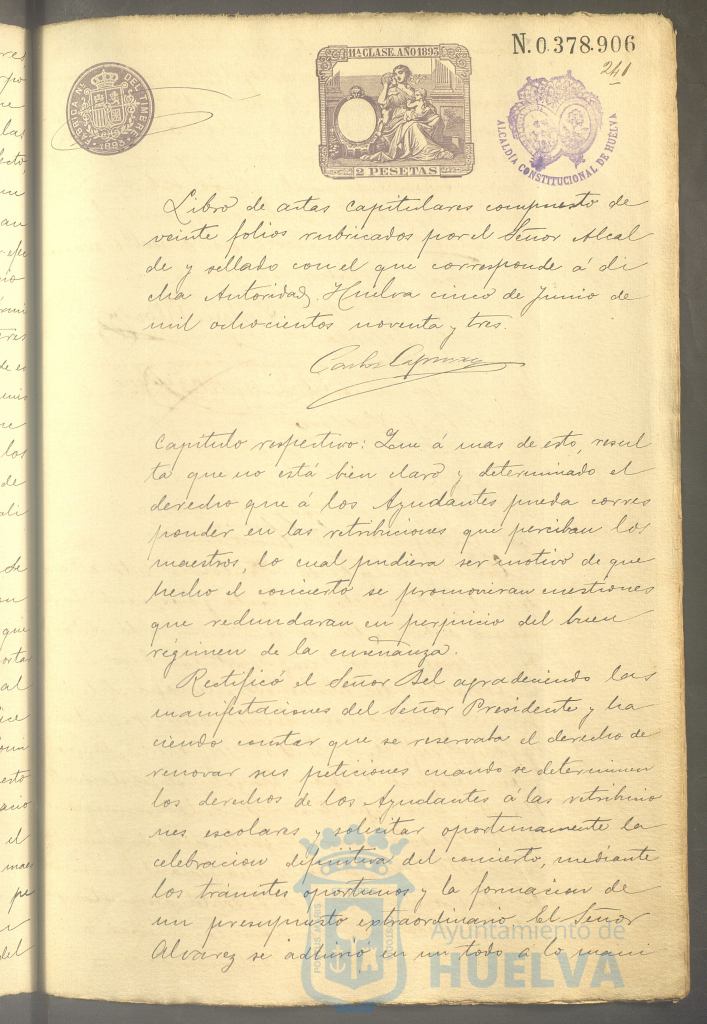 11ª CLASE. AÑO 1893
2 PESETAS
N.0.378.906
241
DEL TIMBRE
1893
ALCALDIA CONSTITUCIONAL DE HUELVA
Libro de actas capitulares compuesto de
veinte folios rubricados por el Señor Alcal
de y sellado con el que corresponde á di
cha Autoridad. Huelva cinco de Junio de
mil ochocientos noventa y tres.
Carlos
Capitulo respectivo: Que á mas de esto, resul
ta que no está bien claro y determinado el
derecho que á los Ayudantes pueda corres
ponder en las retribuciones que perciban los
maestros, lo cual pudiera ser motivo de que
hecho el concierto se promovieran cuestiones
que redundaran en perjuicio del buen
régimen de la enseñanza.
Rectificó el Señor Bel agradeciendo las
manifestaciones del Señor Presidente y ha
ciendo constar que se reservaba el derecho de
renovar sus peticiones cuando se determinen
los derechos de los Ayudantes á las retribucio
nes escolares y solicitar oportunamente la
celebracion definitiva del concierto, mediante
los trámites oportunos y la formacion de
un presupuesto extraordinario. El Señor
Alvarez se adhirió en un todo a lo mani
Ayuntamiento de
HUELVA